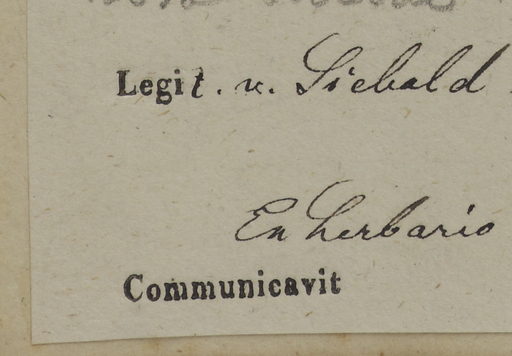 Legit. v. Siebald
Ex herbario
Communicavit